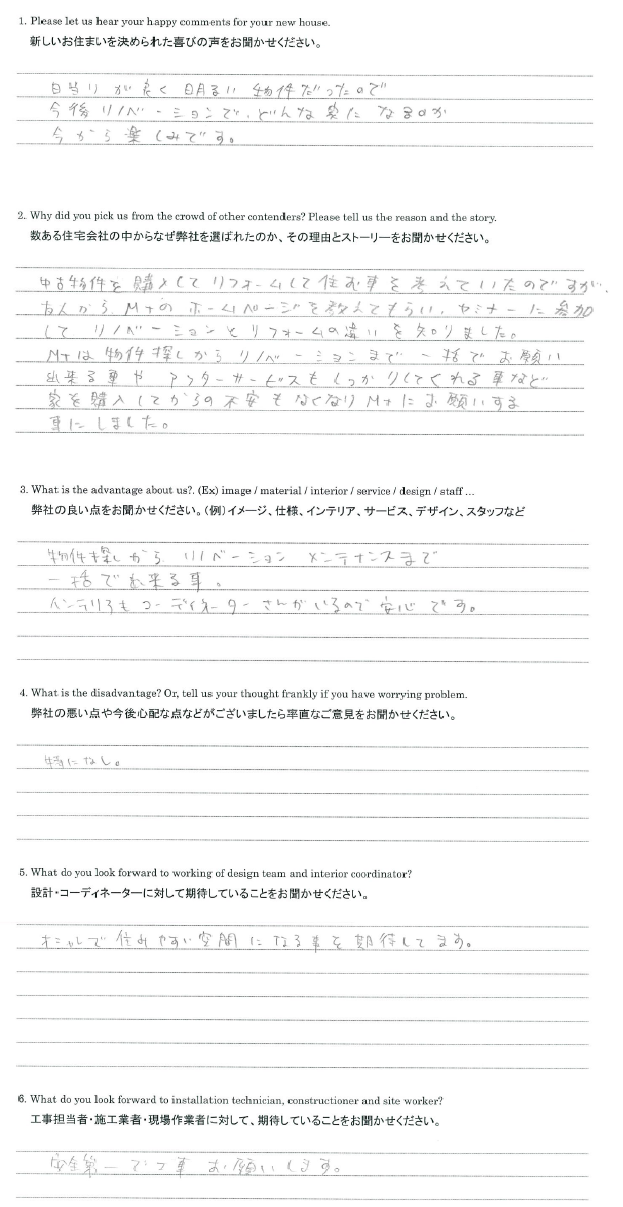 1. Please let us hear your happy comments for your new house.
新しいお住まいを決められた喜びの声をお聞かせください。
日当りが良く明るい物件だったので
今後リノベーションで、どんな家になるのか
今から楽しみです。
2. Why did you pick us from the crowd of other contenders? Please tell us the reason and the story.
数ある住宅会社の中からなぜ弊社を選ばれたのか、その理由とストーリーをお聞かせください。
中古物件を購入してリフォームして住む事を考えていたのですが、
友人からM+のホームページを教えてもらい、セミナーに参加
して リノベーションとリフォームの違いを知りました。
M+は物件探しからリノベーションまで一括でお願い
出来る事や アフターサービスもしっかりしてくれる事など
家を購入してからの不安もなくなりM+にお願いする
事にしました。
3. What is the advantage about us?. (Ex) image / material / interior / service / design / staff ...
弊社の良い点をお聞かせください。（例）イメージ、仕様、インテリア、サービス、デザイン、スタッフなど
物件探しから リノベーション メンテナンスまで
一括で出来る事。
インテリアもコーディネーターさんがいるので安心です。
4. What is the disadvantage? Or, tell us your thought frankly if you have worrying problem.
弊社の悪い点や今後心配な点などがございましたら率直なご意見をお聞かせください。
特になし。
5. What do you look forward to working of design team and interior coordinator?
設計・コーディネーターに対して期待していることをお聞かせください。
オシャレで住みやすい空間になる事を期待してます。
6. What do you look forward to installation technician, constructioner and site worker?
工事担当者・施工業者・現場作業者に対して、期待していることをお聞かせください。
安全第一で工事お願いします。